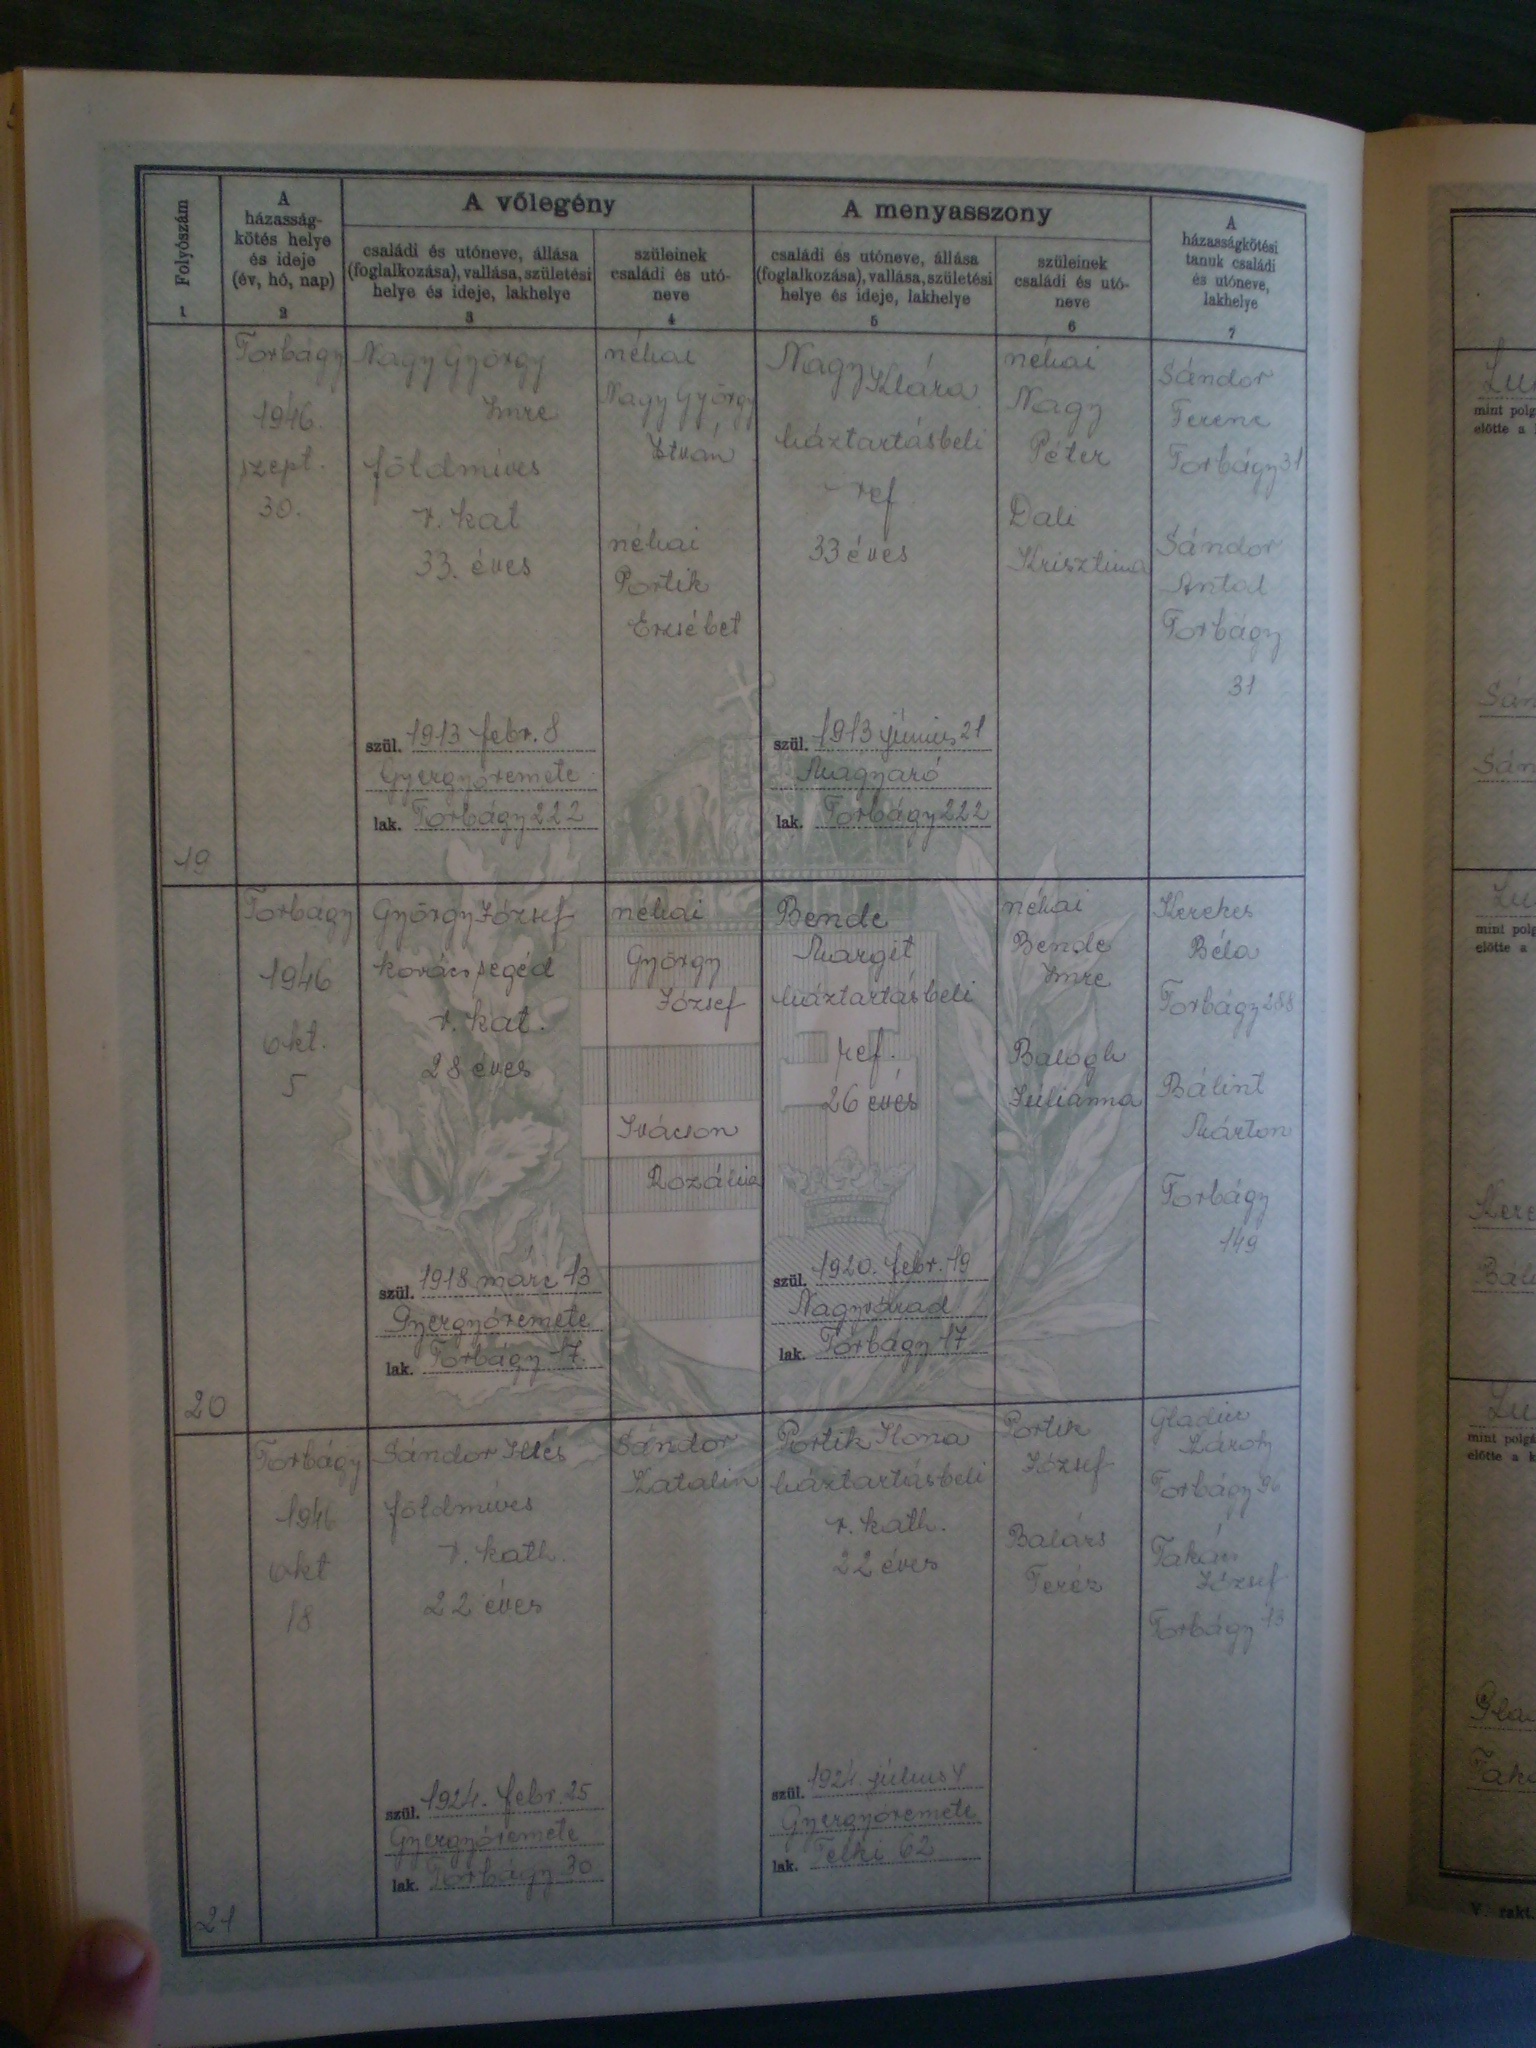 Folyószám
1
A
házasság-
kötés helye
és ideje
(év, hó, nap)
2
A vőlegény
családi és utóneve, állása
(foglalkozása), vallása, születési
helye és ideje, lakhelye
3
szüleinek
családi és utó-
neve
4
A menyasszony
családi és utóneve, állása
(foglalkozása), vallása, születési
helye és ideje, lakhelye
5
szüleinek
családi és utó-
neve
6
A
házasságkötési
tanuk családi
és utóneve,
lakhelye
7
19
Torbágy
1946.
szept.
30.
Nagy György
Imre
földmíves
r. kat
33. éves
szül. 1913 febr. 8
Gyergyóremete
lak. Torbágy 222
néhai
Nagy György
István
néhai
Portik
Erzsébet
Nagy Klára
háztartásbeli
ref.
33 éves
szül. 1913 június 21
Magyaró
lak. Torbágy 222
néhai
Nagy
Péter
Dali
Krisztina
Sándor
Ferenc
Torbágy 31
Sándor
Antal
Torbágy
31
20
Torbágy
1946
okt.
5
György József
kovács segéd
r. kat.
28 éves
szül. 1918 márc 13
Gyergyóremete
lak. Torbágy 17.
néhai
György
József
Ivácson
Rozália
Bende
Margit
háztartásbeli
ref.
26 évés
szül. 1920. febr. 19
Nagyvárad
lak. Torbágy 17
néhai
Bende
Imre
Balogh
Júlianna
Kerekes
Béla
Torbágy 288
Bálint
Márton
Torbágy
149
21
Torbágy
1946
okt
18
Sándor Illés
földmíves
r. kath.
22 éves
szül. 1924. febr. 25
Gyergyóremete
lak. Torbágy 30
Sándor
Katalin
Portik Ilona
háztartásbeli
r. kath.
22 éves
szül. 1924. július 4
Gyergyóremete
lak. Telki 62
Portik
József
Balázs
Teréz
Károly
Torbágy 96
Takács
József
Torbágy 13
mint polg
előtte a
mint polg
előtte a
mint polg
előtte a k
V. rakt.